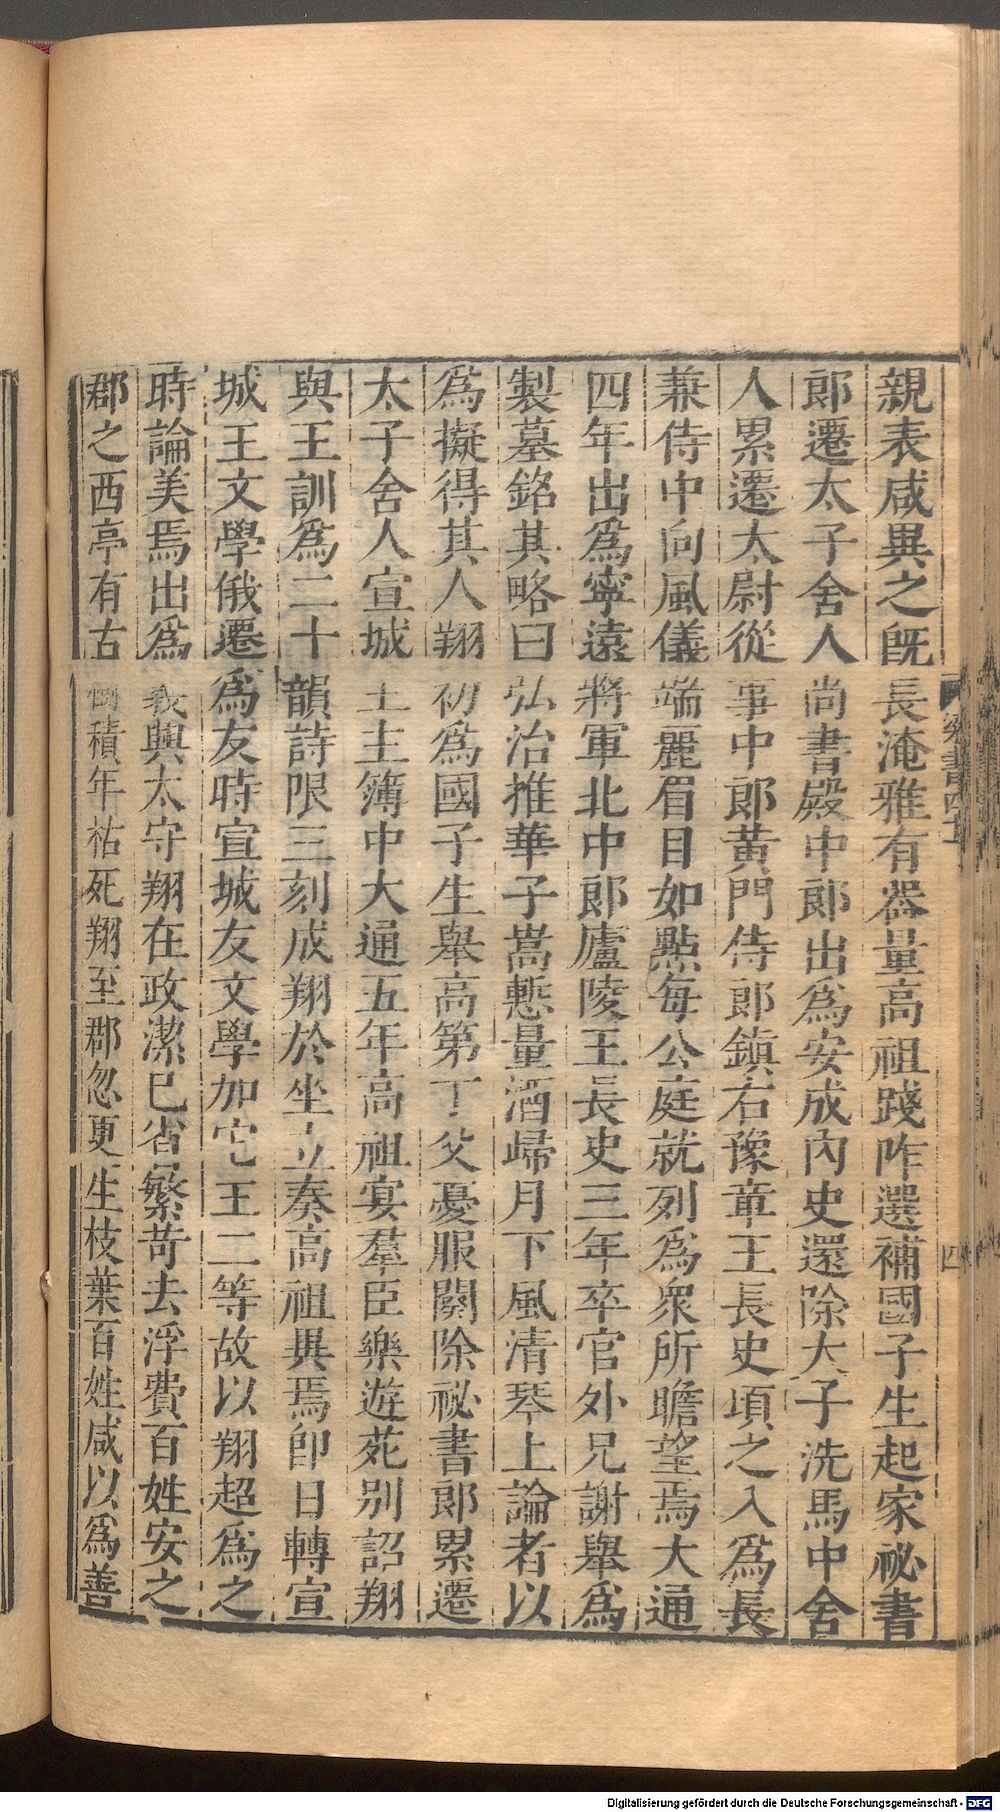 親表咸異之旣長淹雅有器量高祖踐阼選補國子生起家祕書
郎遷太子舍人尚書殿中郎出爲安成內史還除太子洗馬中舍
人累遷太尉從事中郎黃門侍郎鎮右豫章王長史頃之入爲長
兼侍中向風儀端麗眉目如點每公庭就列爲衆所瞻望焉大通
四年出爲寧遠將軍北中郎廬陵王長史三年卒官外兄謝舉爲
製墓銘其略曰弘治推華子嵩慙量酒歸月下風清琴上論者以
爲擬得其人翔初爲國子生舉高第丁父憂服闋除祕書郎累遷
太子舍人宣城王主簿中大通五年高祖宴羣臣樂遊苑別詔翔
與王訓爲二十韻詩限三刻成翔於坐立奏高祖異焉卽日轉宣
城王文學俄遷爲友時宣城友文學加它王二等故以翔超爲之
時論美焉出爲義興太守翔在政潔已省繁苛去浮費百姓安之
郡之西亭有古樹積年枯死翔至郡忽更生枝葉百姓咸以爲善
梁書四
四
Digitalisierung gefördert durch die Deutsche Forschungsgemeinschaft - DFG